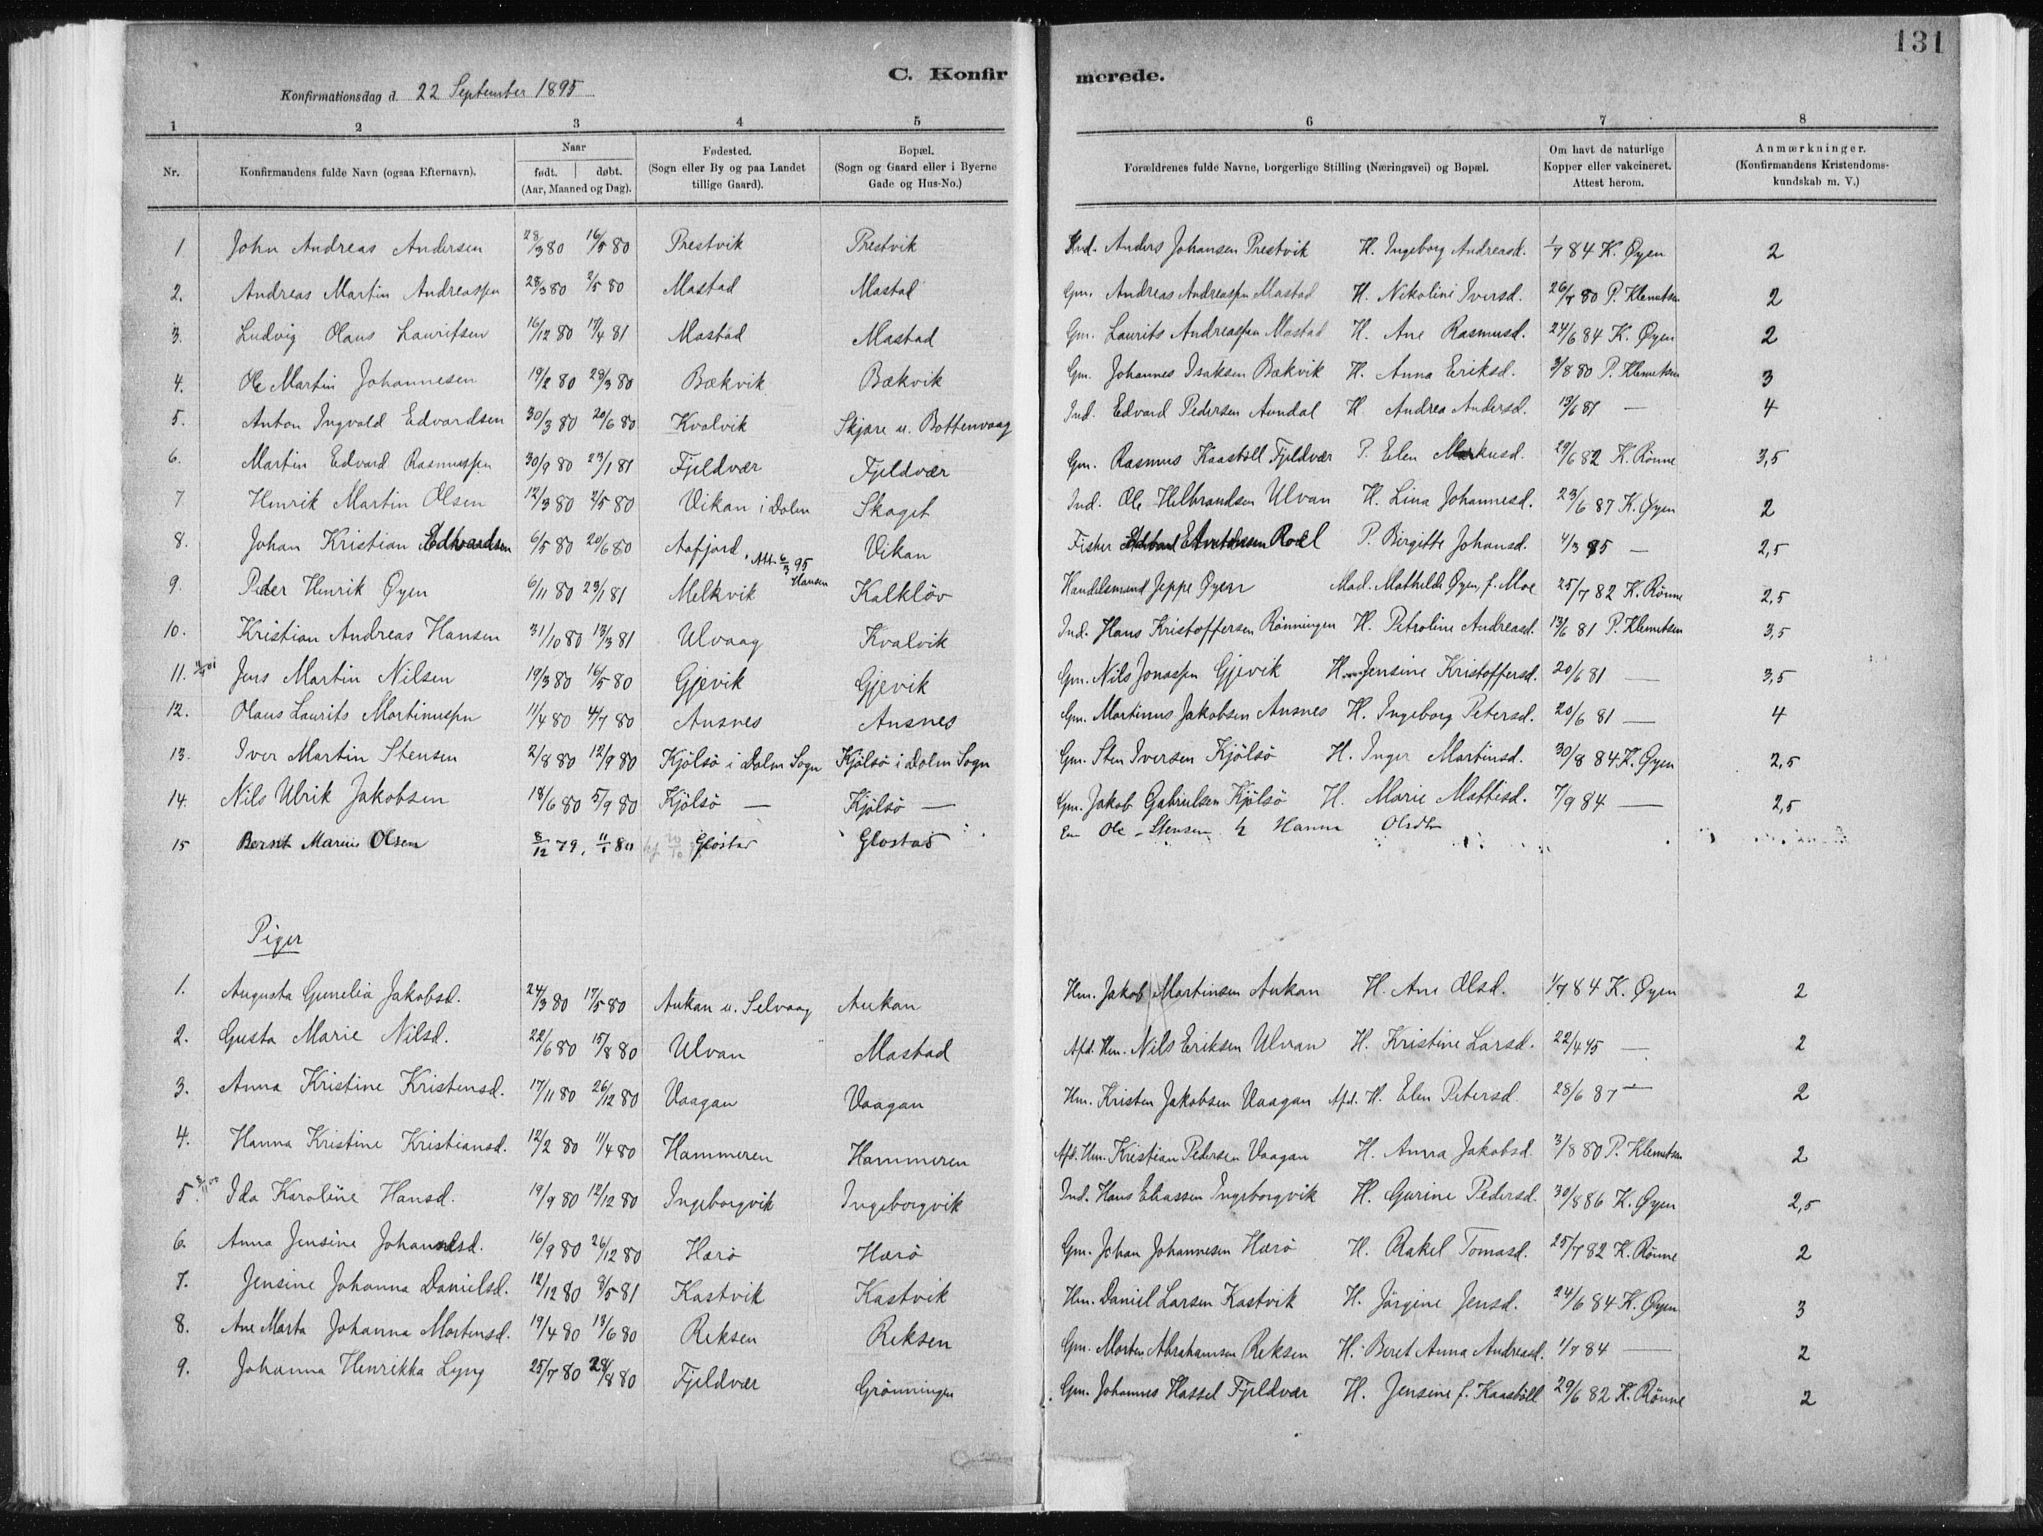 131
C. Konfirmerede.
Konfirmationsdag d. 22 September 1895
1 2 3 4 5 6 7 8
Nr. Konfirmandens fulde Navn (ogsaa Efternavn). Naar født. døbt. (Aar, Maaned og Dag). Fødested. (Sogn eller By og paa Landet tillige Gaard). Bopæl. (Sogn og Gaard eller i Byerne Gade og Hus-No.) Forældrenes fulde Navne, borgerlige Stilling (Næringsvei) og Bopæl. Om havt de naturlige Kopper eller vakcineret. Attest herom. Anmærkninger. (Konfirmandens Kristendomskundskab m. V.)
1 John Andreas Andersen 28/3 80 16/5 80 Prestvik Prestvik Ind. Anders Johansen Prestvik H. Ingeborg Andreasd. 1/7 84 K. Øyen 2
2. Andreas Martin Andreassen 28/3 80 2/5 80 Mastad Mastad Gm. Andreas Andreassen Mastad H. Nikoline Iversd. 26/7 80 P. Klemetsen 2
3. Ludvig Olaus Lauritsen 16/12 80 17/4 81 Mastad Mastad Gm. Laurits Andreassen Mastad H. Ane Rasmusd. 24/6 84 K. Øyen 2
4. Ole Martin Johannesen 19/2 80 29/3 80 Bækvik Bækvik Gm. Johannes Isaksen Bækvik H. Anna Eriksd. 3/8 80 P. Klemetsen 3
5. Anton Ingvald Edvardsen 30/3 80 20/6 80 Kvalvik Skjære u. Bottenvaag Ind. Edvard Pedersen Aundal H. Andrea Andersd. 13/6 81 — 4
6. Martin Edvard Rasmussen 30/9 80 23/1 81 Fjeldvær Fjeldvær Gm. Rasmus Kaasböll Fjeldvær P. Elen Markusd. 29/6 82 K. Rönne 3,5
7 Henrik Martin Olsen 12/3 80 2/5 80 Vikan i Dolm Skaget Ind. Ole Helbrandsen Ulvan H. Lina Johannesd. 23/6 87 K. Øyen 2
8. Johan Kristian Edvardsen 6/5 80 20/6 80 Aafjord. Att. 6/3 95 Hansen Vikan Fisker Roel P. Birgitte Johansd. 4/3 95 — 2,5
9. Peder Henrik Øyen 6/11 80 23/1 81 Melkvik Kalklöv Handelsmand Jeppe Øyen Mad. Mathilde Øyen, f. Moe 25/7 82 K. Rönne 2,5
10. Kristian Andreas Hansen 31/10 80 13/3 81 Ulvaag Kvalvik Ind. Hans Kristoffersen Rönningen H. Petroline Andreasd. 13/6 81 P. Klemetsen 3,5
11. Jens Martin Nilsen 19/3 80 16/5 80 Gjevik Gjevik Gm. Nils Jonassen Gjevik H. Jensine Kristoffersd. 20/6 81 — 3,5
12. Olaus Laurits Martinussen 11/4 80 4/7 80 Ansnes Ansnes Gm. Martinus Jakobsen Ansnes H. Ingeborg Petersd. 20/6 81 — 4
13. Iver Martin Stensen 2/8 80 12/9 80 Kjölsö i Dolm Sogn Kjölsö i Dolm Sogn Gm. Sten Iversen Kjölsö H. Inger Martinsd. 30/8 84 K. Øyen 2,5
14. Nils Ulrik Jakobsen 18/6 80 5/9 80 Kjölsö — Kjölsö — Gm. Jakob Gabrielsen Kjölsö H. Marie Mattisd. 7/9 84 — 2,5
15 Bernt Marius Olsen 8/12 79. 11/1 80 Glöstad Glostad Em Ole Stensen H Hanna Olsdtr
Piger
1. Augusta Gunelia Jakobsd. 24/3 80 17/5 80 Aukan u. Selvaag Aukan Hm. Jakob Martinsen Aukan H. Ane Olsd. 1/7 84 K. Øyen 2
2. Gusta Marie Nilsd. 22/6 80 15/8 80 Ulvan Mastad Afd. Hm. Nils Eriksen Ulvan H. Kristine Larsd. 22/4 95 — 2
3. Anna Kristine Kristensd. 17/11 80 26/12 80 Vaagan Vaagan Hm. Kristen Jakobsen Vaagan Afd. H. Elen Petersd. 28/6 87 — 2
4. Hanna Kristine Kristiansd. 12/2 80 11/4 80 Hammeren Hammeren Afd. Hm. Kristian Pedersen Vaagan H. Anna Jakobsd 3/8 80 P. Klemetsen 2
5. Ida Karoline Hansd. 19/9 80 12/12 80 Ingeborgvik Ingeborgvik Ind. Hans Eliassen Ingeborgvik H. Gurine Pedersd. 30/8 86 K. Øyen 2,5
6. Anna Jensine Johansd. 16/9 80 26/12 80 Hærö Hærö Gm. Johan Johannesen Hærö H. Rakel Tomasd. 25/7 82 K. Rönne 2
7. Jensine Johanna Danielsd. 12/12 80 8/5 81 Kastvik Kastvik Hm. Daniel Larsen Kastvik H. Jörgine Jensd. 24/6 84 K. Øyen 3
8. Ane Marta Johanna Mortensd. 19/4 80 13/6 80 Reksen Reksen Gm. Morten Abrahamsen Reksen H. Beret Anna Andreasd. 1/7 84 — 2
9. Johanna Henrikka Lyng 25/7 80 28/8 80 Fjeldvær Grönningen Gm. Johannes Hassel Fjeldvær H. Jensine f. Kaasböll 29/6 82 K. Rönne 2